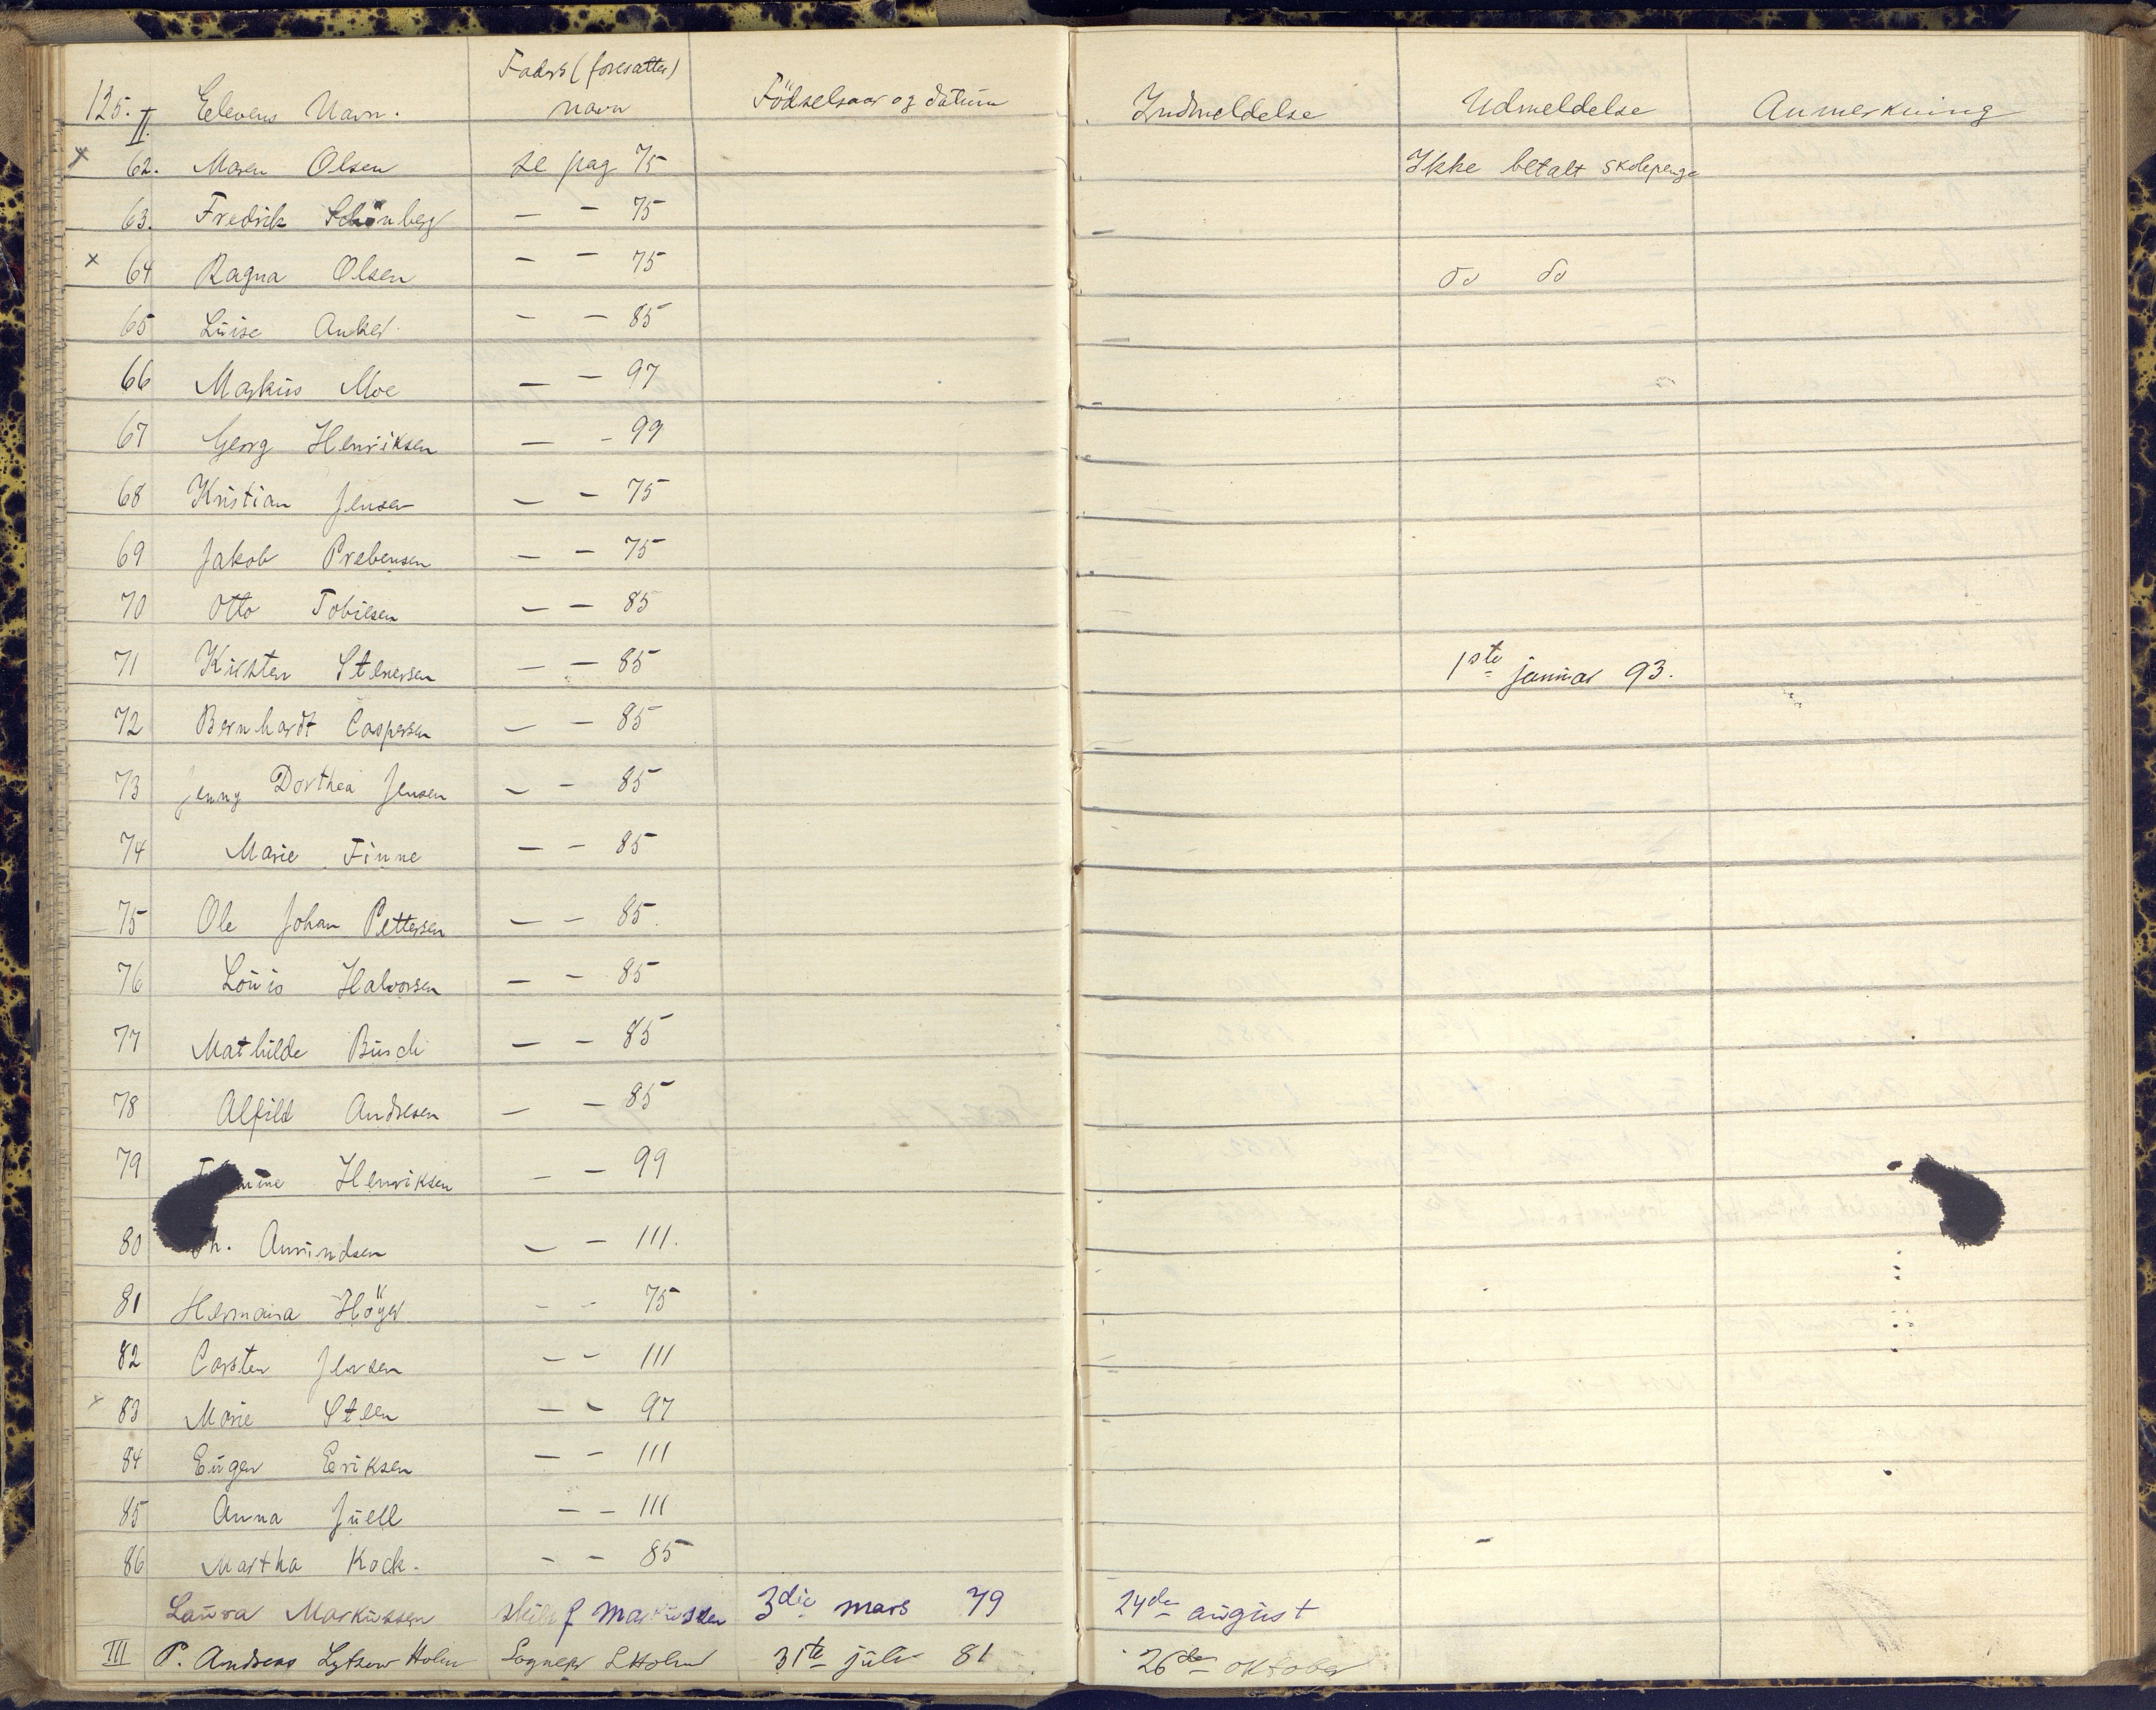 125. II. Elevens Navn. Faders (foresattes) navn Födselsaar og datum Indmeldelse Udmeldelse Anmerkning
x 62. Maren Olsen se pag 75 Ikke betalt skolepenge
63. Fredrik Schönberg — — 75
x 64 Ragna Olsen — — 75 do do
65 Luise Anker — — 85
66 Markus Moe — — 97
67 Georg Henriksen — - 99
68 Kristian Jensen — — 75
69 Jakob Prebensen — — 75
70 Otto Tobiesen — — 85
71 Kirsten Stenersen — — 85 1ste januar 93.
72 Bernhardt Caspersen — — 85
73 Jenny Dorthea Jensen — — 85
74 Marie Finne — — 85
75 Ole Johan Pettersen — — 85.
76 Louis Halvorsen — — 85
77 Mathilde Busch — — 85
78 Alfild Andresen — — 85
79 Henriksen — — 99
80 Th. Amundsen — — 111.
81 Hermana Höyer — — 75
82 Carsten Jensen — — 111
x 83 Marie Steen — — 97
84 Eugen Eriksen — — 111
85 Anna Juell — — 111
86 Martha Kock. — — 85
Laura Markussen Markussen 3die mars 79 24de august
III P. Andreas Lytzow Holm Sogneps LHolm 31te juli 81 26de oktober